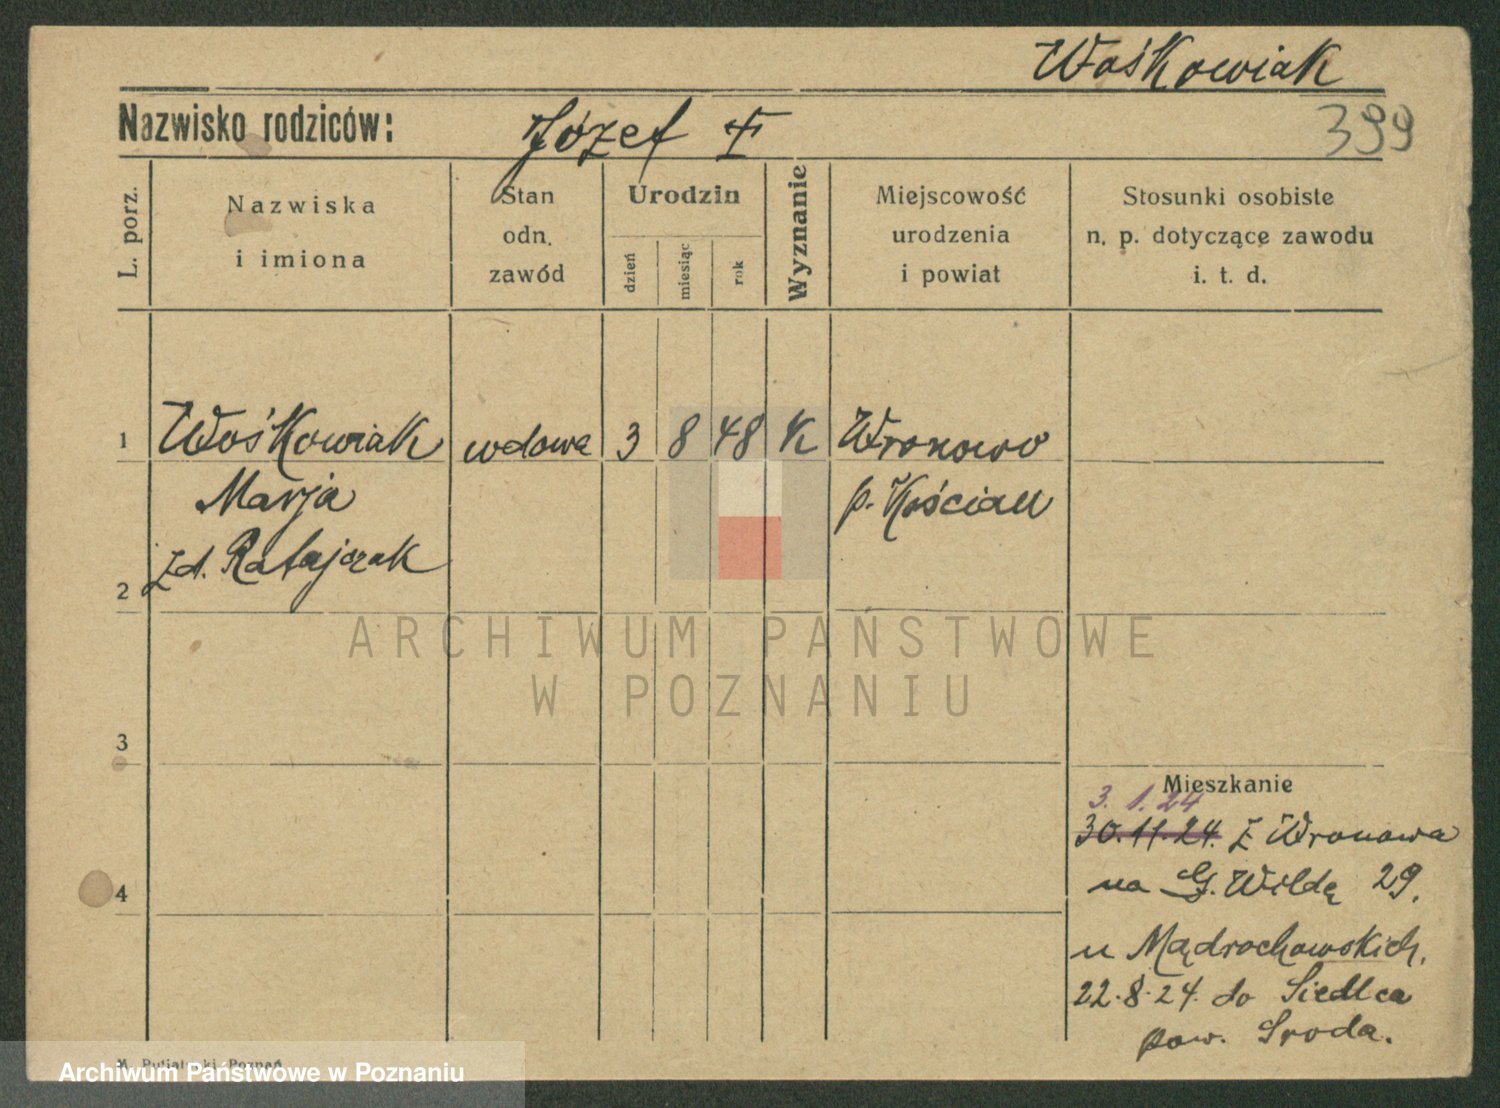 Wośkowiak
Nazwisko rodziców: Józef †
399
L. porz.
Nazwiska
i imiona
Stan
odn.
zawód
Urodzin
dzień
miesiąc
rok
Wyznanie
Miejscowość
urodzenia
i powiat
Stosunki osobiste
n. p. dotyczące zawodu
i. t. d.
1 Wośkowiak wdowa 3 8 48 K Wronowo
Marja p. Kościan
zd. Ratajczak
2
ARCHIWUM PAŃSTWOWE
W POZNANIU
3
Mieszkanie
3. 1. 24
30.11.24. z Wronowa
4
na G. Wildę 29.
u Mądrochowskich.
22.8.24. do Siedlca
pow. Sroda.
Poznań
Archiwum Państwowe w Poznaniu